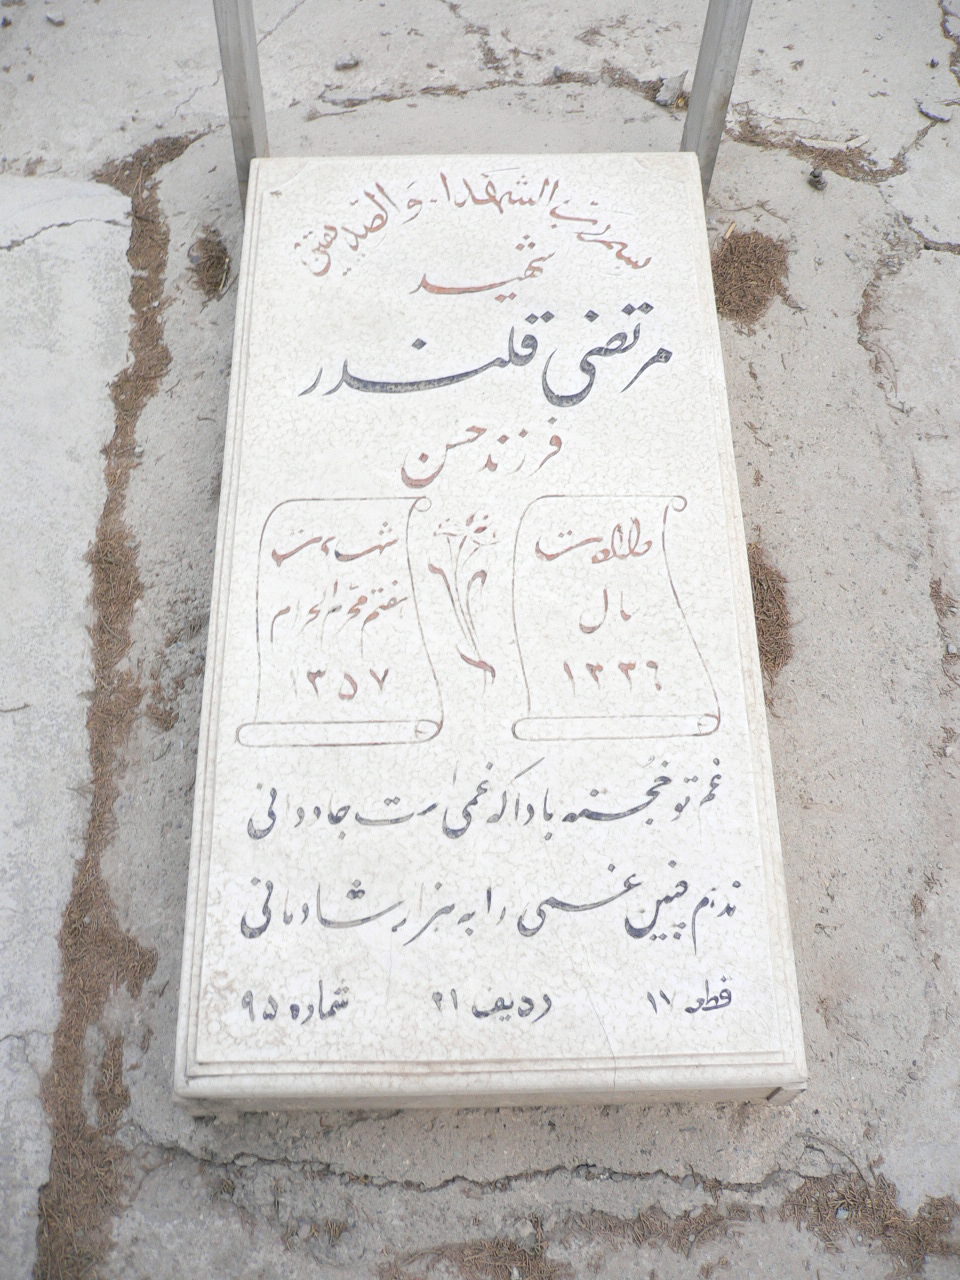 بسم رب الشهداء والصدیقین
شهید
مرتضی قلندر
فرزند حسن
ولادت
سال
۱۳۳۶
شهادت
هفتم محرم الحرام
۱۳۵۷
غم تو خجسته بادا که غمی است جاودانی
ندهم چنین غمی را به هزار شادمانی
قطعه ۱۷ ردیف ۲۱ شماره ۹۵